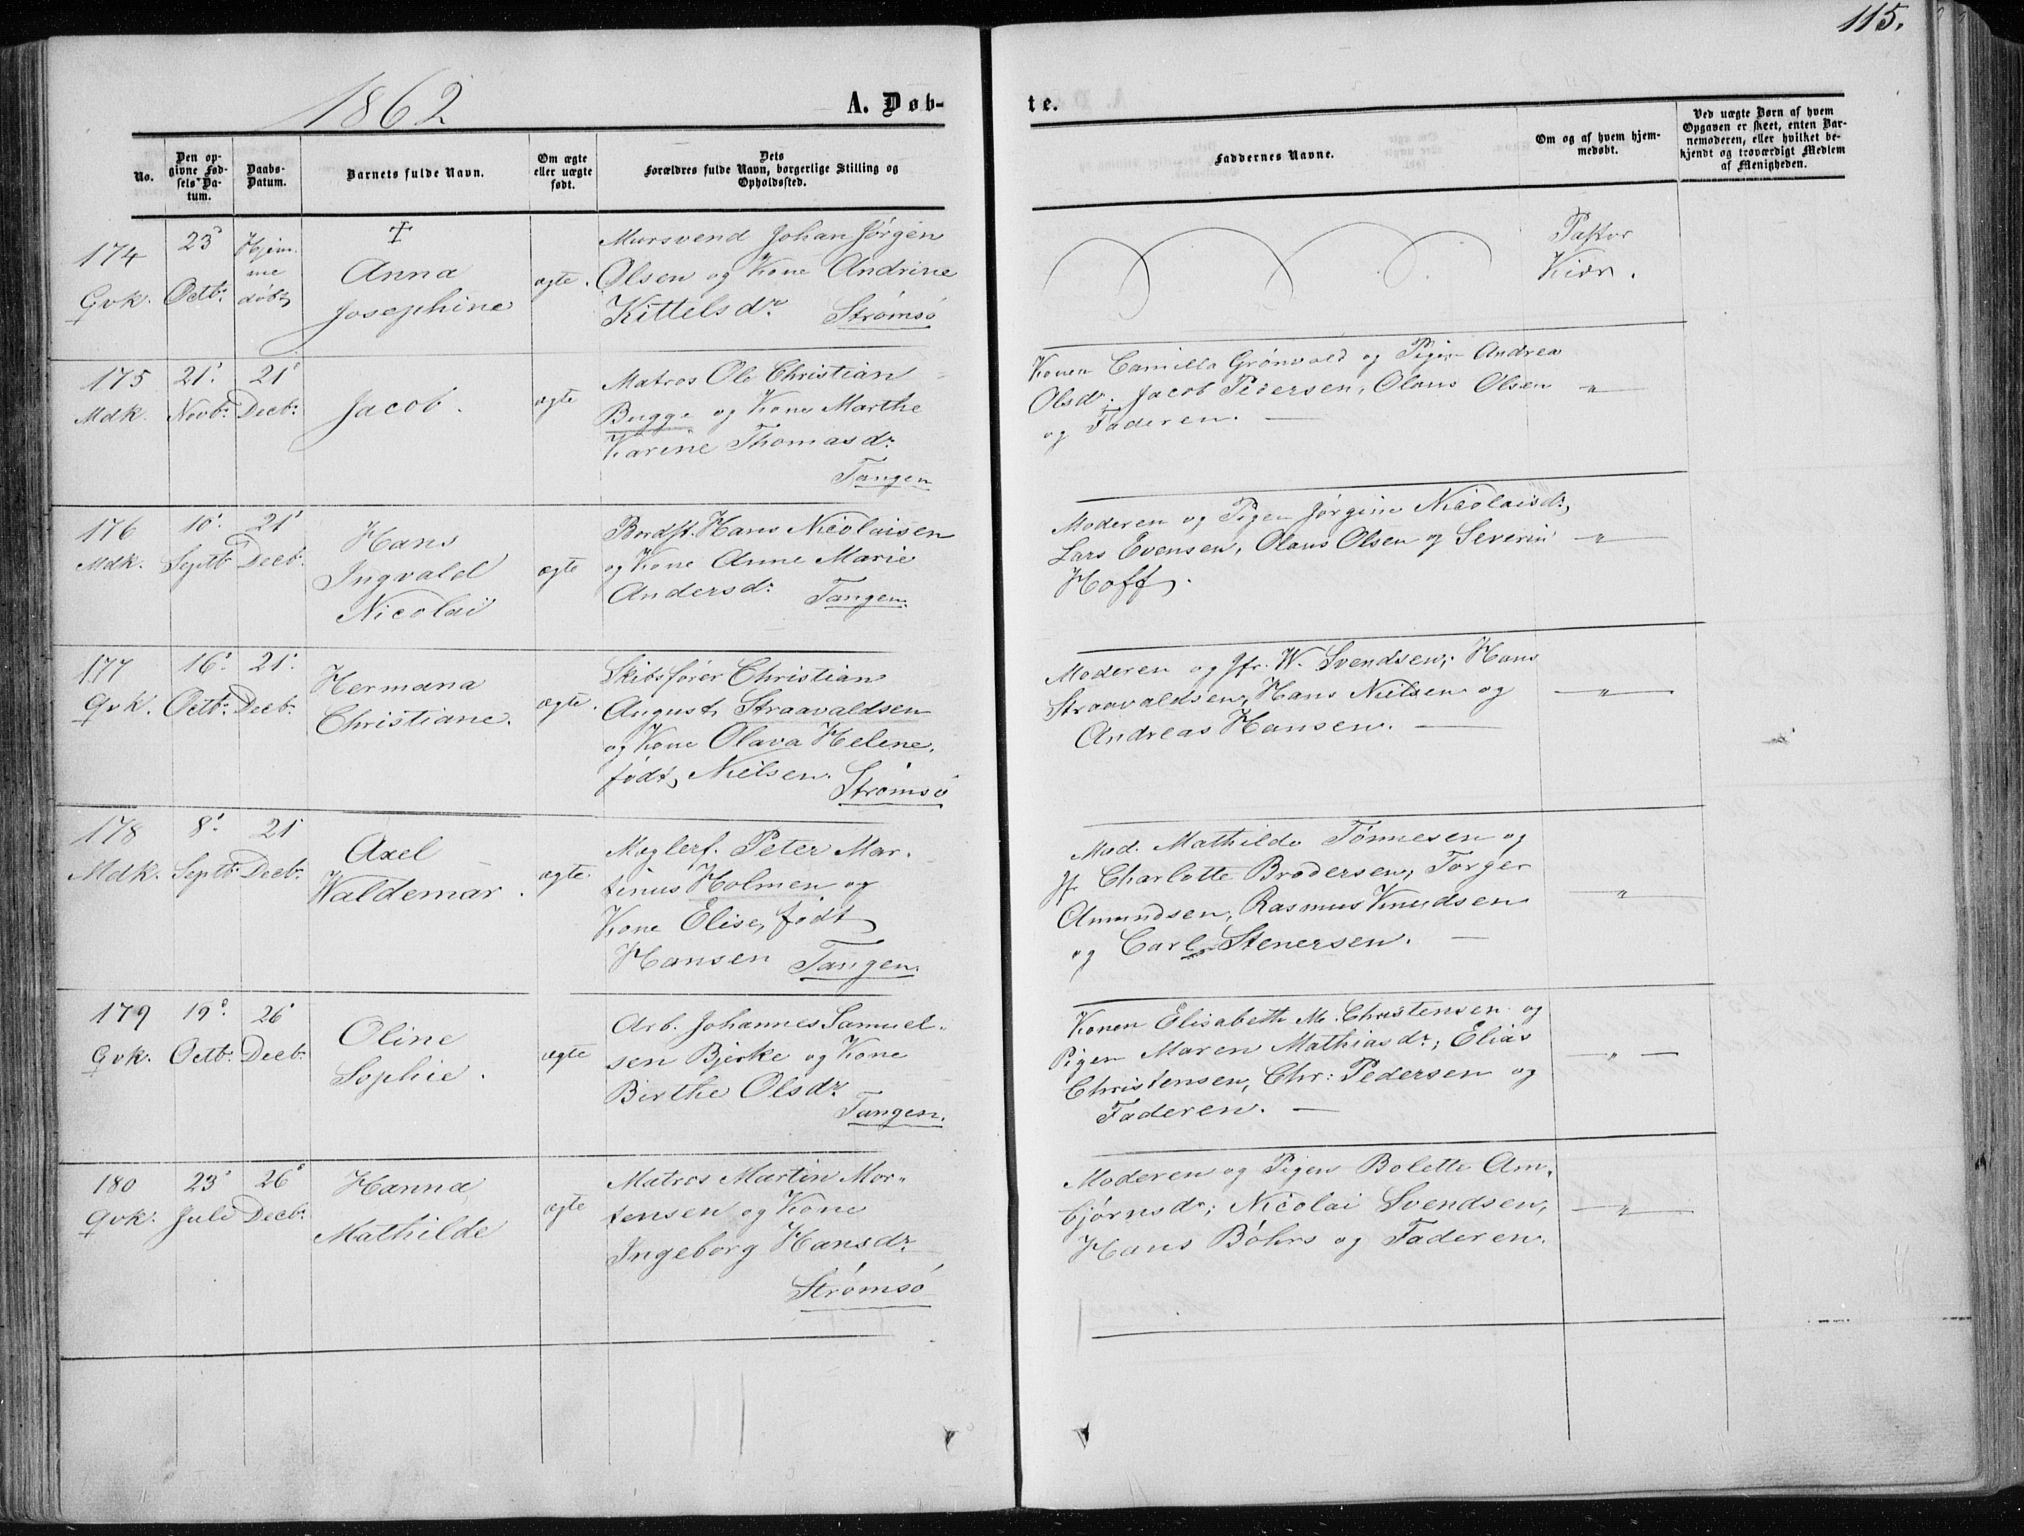 115.
1862
A. Døb-
te.
No.
Den op-
givne Fød-
sels-Da-
tum.
Daabs-
Datum.
Barnets fulde Navn.
Om ægte
eller uægte
født.
Dets
Forældres fulde Navn, borgerlige Stilling og
Opholdssted.
Faddernes Navne.
Om og af hvem hjem-
medøbt.
Ved uægte Børn af hvem
Opgaven er skeet, enten Bar-
nemoderen, eller hvilket be-
kjendt og troværdigt Medlem
af Menigheden.
174
Qvk.
23'
Octbr.
Hjem-
me
døbt
†
Anna
Josephine
ægte.
Mursvend Johan Jørgen
Olsen og Kone Andrine
Kittelsdr.
Strømsø
Pastor
Kiær.
175
Mdk.
21'.
Novbr.
21'
Decbr.
Jacob.
ægte
Matros Ole Christian
Bugge og Kone Marthe
Karine Thomasdr.
Tangen
Konen Camilla Grønvold og Pigen Andrea
Olsdr; Jacob Pedersen, Olaus Olsen
og Faderen. —
— " —
176
Mdk.
10'.
Septbr
21'
Decbr.
Hans
Ingvald
Nicolai
ægte
Bordst. Hans Nicolaisen
og Kone Anne Marie
Andersdr.
Tangen.
Moderen og Pigen Jørgine Nicolaisdr,
Lars Evensen, Olaus Olsen og Severin
Hoff.
— " —
177
Qvk.
16'.
Octbr.
21'.
Decbr.
Hermana
Christiane.
ægte.
Skibsfører Christian
August Straavaldsen
og Kone Olava Helene,
født Nielsen.
Strømsø
Moderen og Jfr. W. Svendsen; Hans
Straavaldsen, Hans Nielsen og
Andreas Hansen. —
— " —
178
Mdk.
8'.
Septbr
21'
Decbr.
Axel
Waldemar.
ægte
Meglerf. Peter Mar-
tinus Holmen og
Kone Elise, født
Hansen
Tangen.
Mad. Mathilde Tønnesen og
Jf Charlotte Brodersen, Torger
Amundsen, Rasmus Knudsen
og Carl Stenersen. —
— " —
179
Qvk.
19'.
Octbr.
26'
Decbr.
Oline
Sophie.
ægte
Arb. Johannes Samuel-
sen Bjerke og Kone
Birthe Olsdr.
Tangen.
Konen Elisabeth M. Christensen og
Pigen Maren Mathiasdr; Elias
Christensen, Chr: Pedersen og
Faderen. —
— " —
180
Qvk.
23'
Juli
26'
Decbr.
Hanna
Mathilde
ægte
Matros Martin Mor-
tensen og Kone
Ingeborg Hansdr.
Strømsø
Moderen og Pigen Bolette Am-
bjørnsdr; Nicolai Svendsen,
Hans Bøhrs og Faderen.
— " —